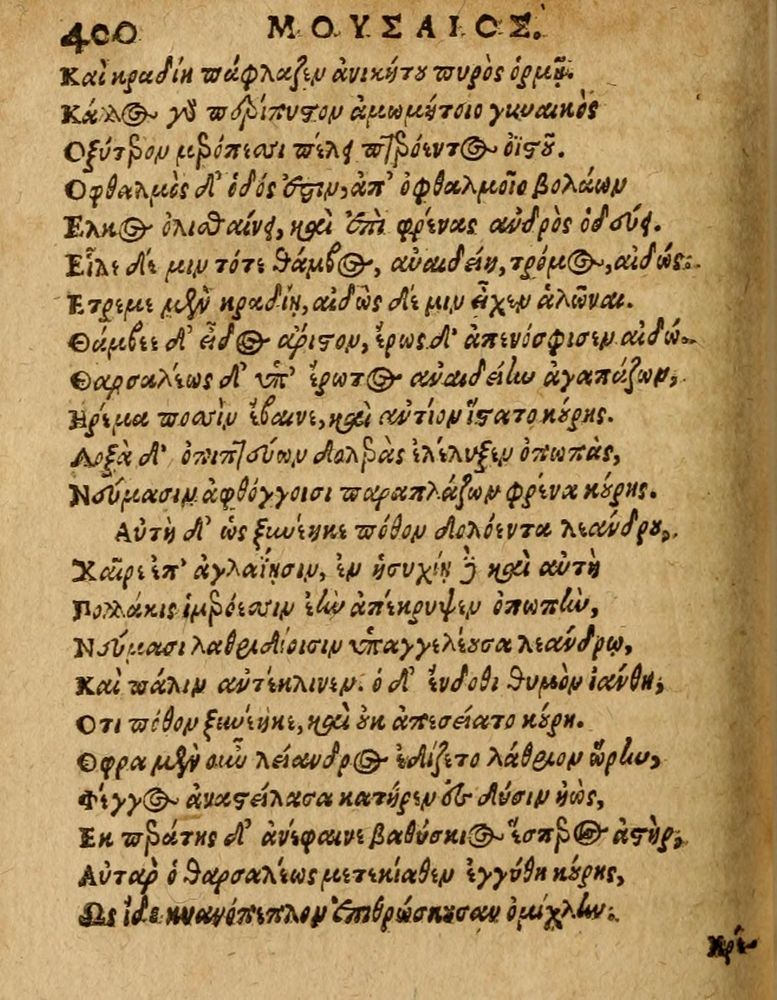 400 ΜΟΥΣΑΙΟΣ.
Καὶ κραδίη πάφλαζεν ἀνικήτου πυρὸς ὁρμῇ.
Κάλλος γὰρ περίπυστον ἀμωμήτοιο γυναικὸς
Οξύτερον μερόπεσσι πέλει πτερόεντος ὀϊστοῦ.
Οφθαλμὸς δ' ὁδός ἐστιν, ἀπ' ὀφθαλμοῖο βολάων
Ελκος ὀλισθαίνει, καὶ ἐπὶ φρένας ἀνδρὸς ὁδεύει.
Εἷλε δέ μιν τότε θάμβος, ἀναιδείη, τρόμος, αἰδώς.
Ετρεμε μὲν κραδίη, αἰδὼς δέ μιν εἶχεν ἁλῶναι.
Θάμβεε δ' εἶδος ἄριστον, ἔρως δ' ἀπενόσφισεν αἰδῶ.
Θαρσαλέως δ' ὑπ' ἔρωτος ἀναιδείην ἀγαπάζων,
Ηρέμα ποσσὶν ἔβαινε, καὶ ἀντίον ἵστατο κούρης.
Λοξὰ δ' ὀπιπτεύων δολερὰς ἐλέλυξεν ὀπωπὰς,
Νεύμασιν ἀφθόγγοισι παραπλάζων φρένα κούρης.
Αὐτὴ δ' ὡς ξυνέηκε πόθον δολόεντα λεάνδρου,
Χαῖρε ἐπ' ἀγλαΐῃσιν, ἐν ἡσυχίῃ δὲ καὶ αὐτὴ
Πολλάκις ἱμερόεσσιν ἑὴν ἀπέκρυψεν ὀπωπὴν,
Νεύμασι λαθριδίοισιν ὑπαγγελέουσα λεάνδρῳ,
Καὶ πάλιν αὐτέκλινεν. ὁ δ' ἔνδοθι θυμὸν ἰάνθη,
Οτι πόθον ξυνέηκε, καὶ οὐκ ἀπεσείατο κούρη.
Οφρα μὲν οὖν λείανδρος ἐδίζετο λάθριον ὥρην,
Φέγγος ἀναστείλασα κατῄεν ἐς δύσιν ἠὼς,
Εκ περάτης δ' ἀνέφαινε βαθύσκιος ἕσπερος ἀστὴρ,
Αὐτὰρ ὁ θαρσαλέως μετεκίαθεν ἐγγύθι κούρης,
Ως ἴδε κυανόπεπλον ἐπιθρώσκουσαν ὀμίχλην.
Ηρέ-